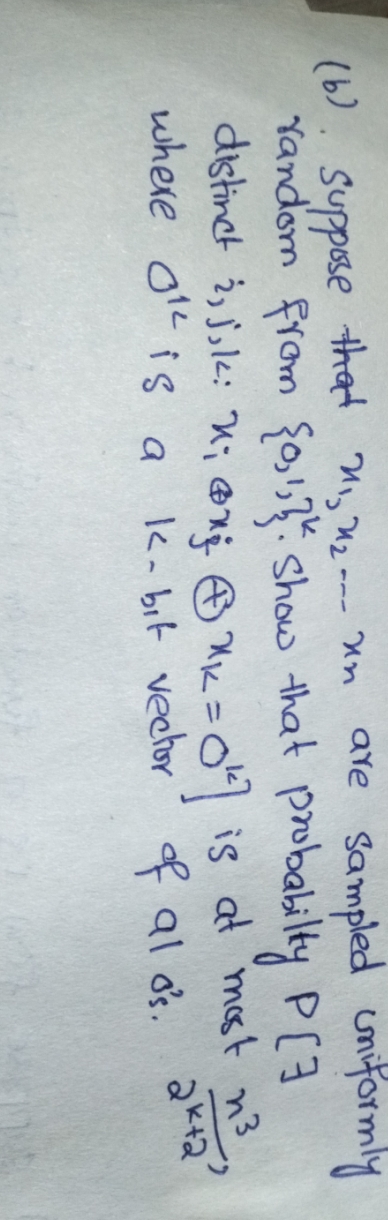 (b). Suppose that x₁, x₂ --- xn are sampled uniformly
random from {0,1,}ᵏ. Show that probabilty P[∃
distinct i,j,k: xᵢ ⊕ xⱼ ⊕ xₖ = 0ᵏ] is at most n³/2ᵏ⁺²,
where 0ᵏ is a k-bit vector of al 0's.